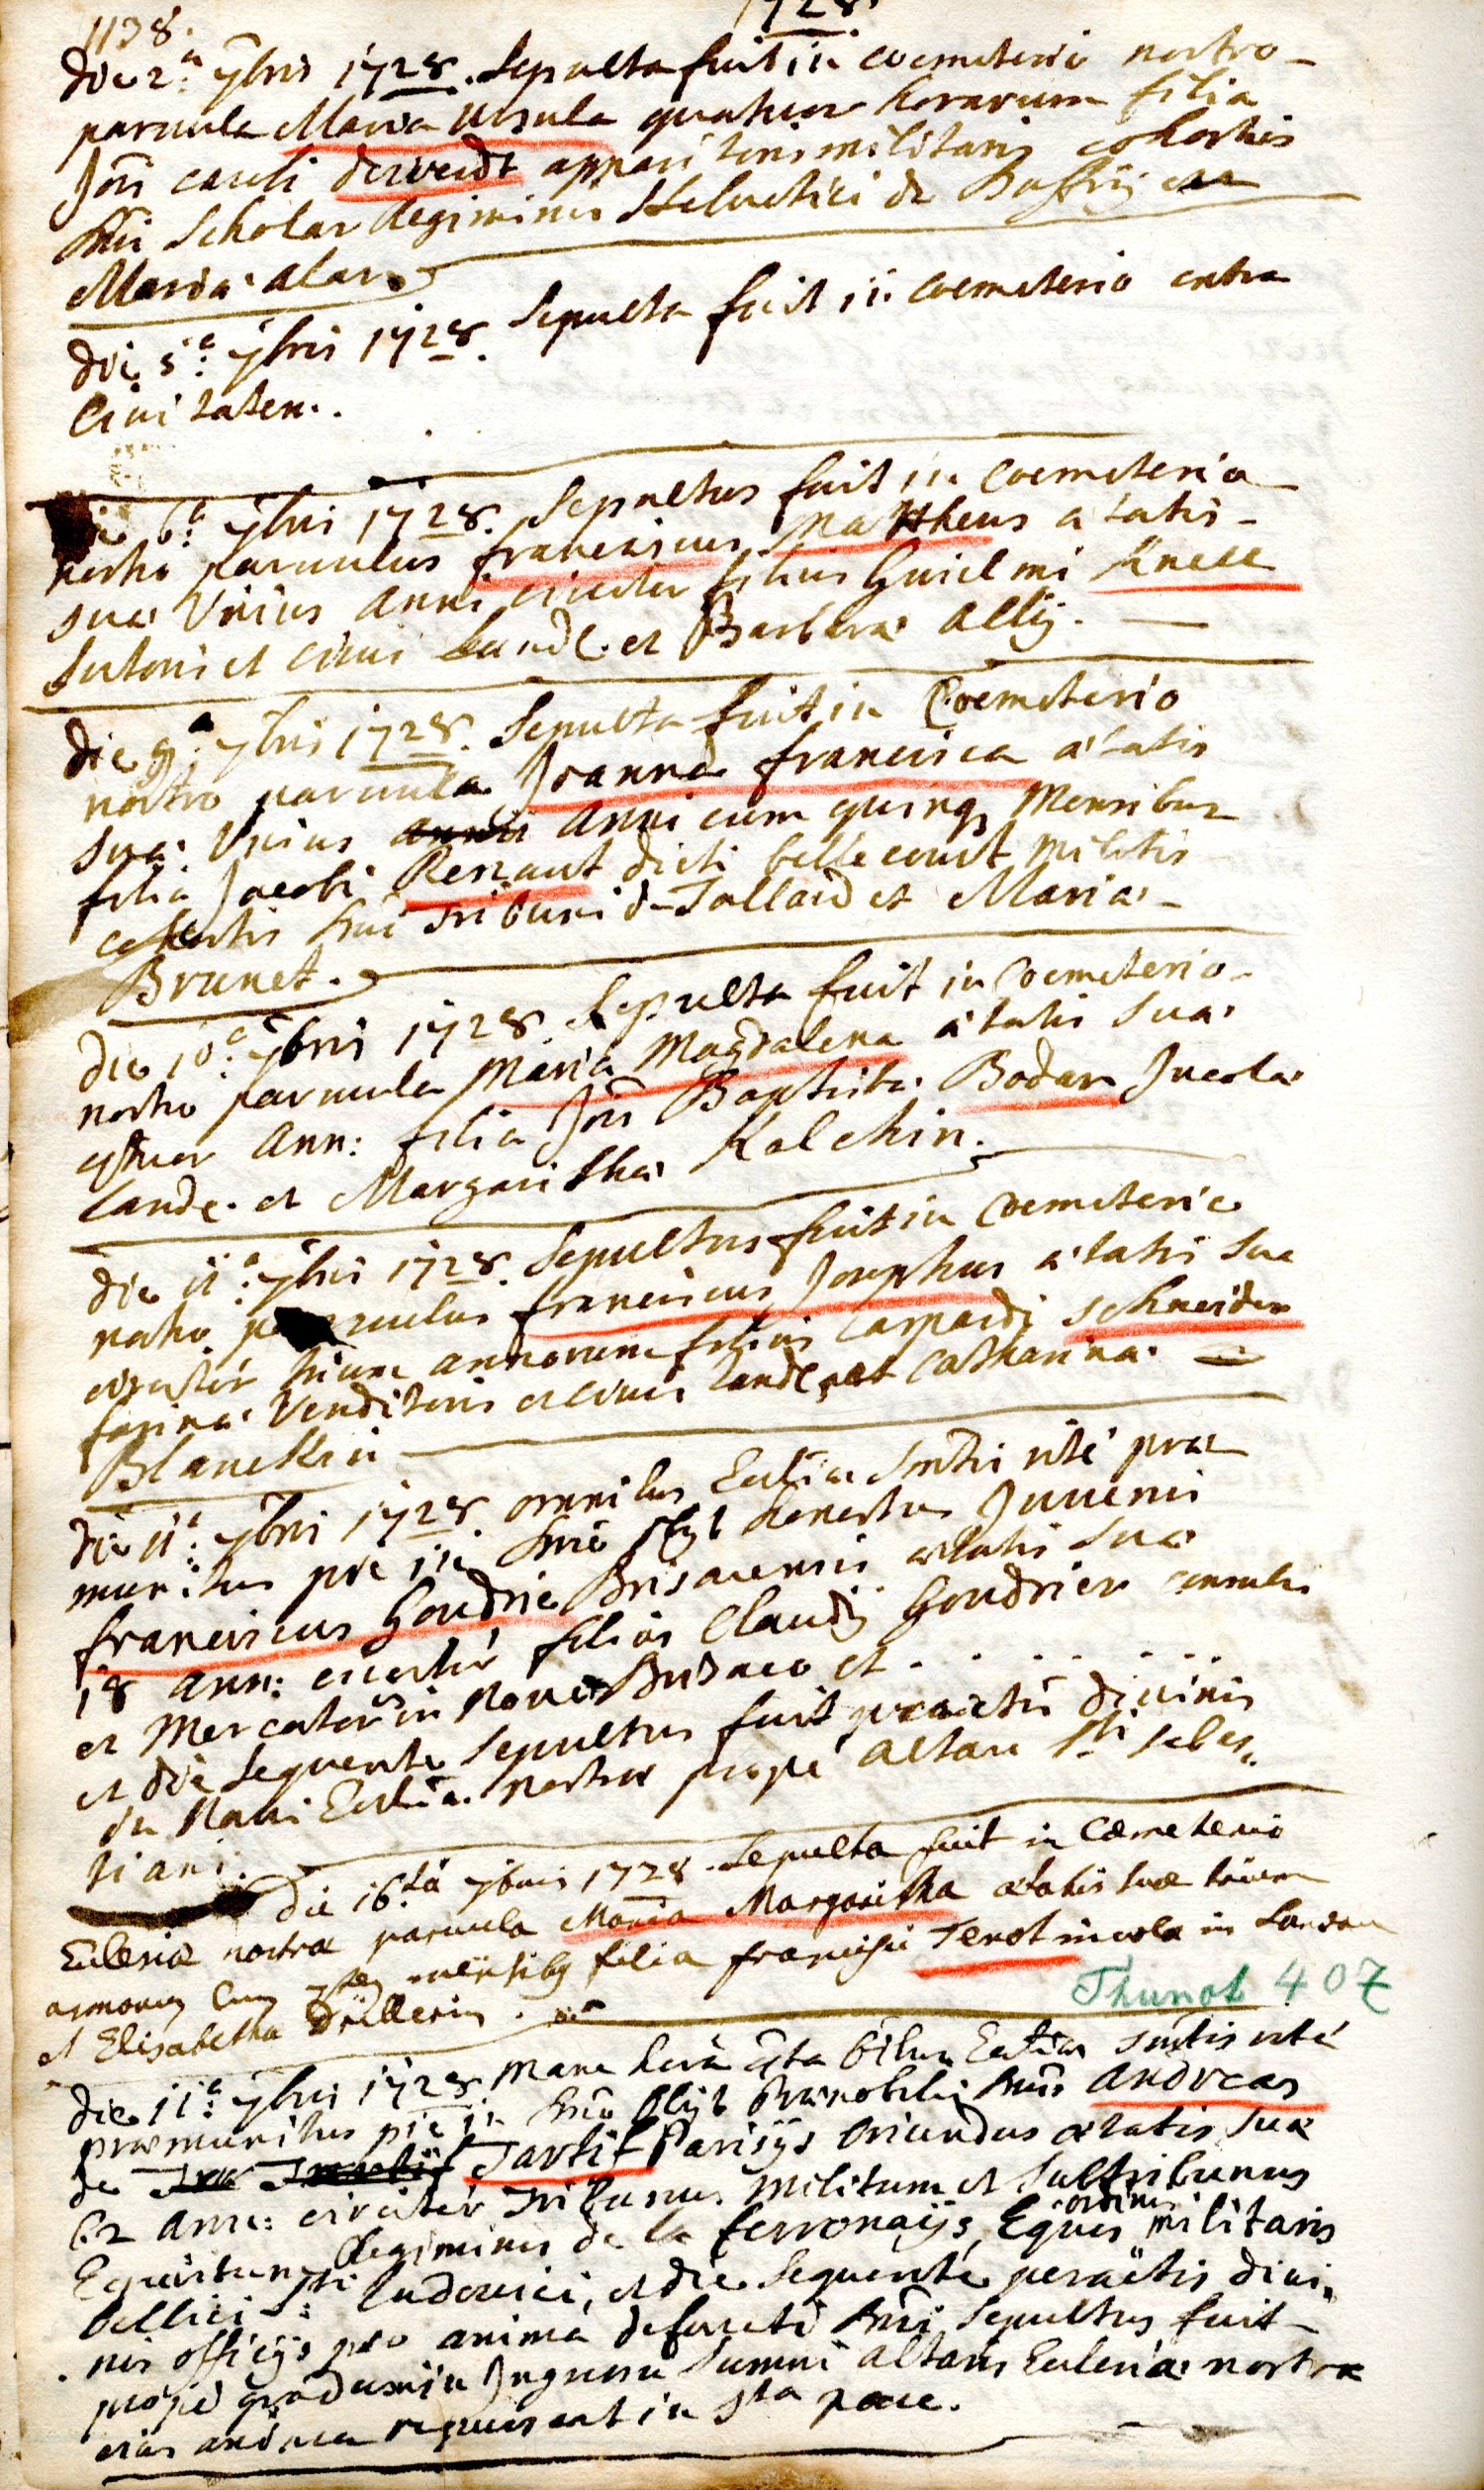 1138.
1728.
Die 2.a 7bris 1728. Sepulta fuit in coemeterio nostro
parvula Maria Ursula quatuor horarum filia
Jois caroli derveidt apparitoris militaris cohortis
Dni Scholar Regiminis Helvetici de
Maria
die 5.a 7bris 1728. Sepulta fuit in coemeterio extra
Civitatem.
die 6.a 7bris 1728. Sepultus fuit in Coemeterio
nostro parvulus franciscus Mattheus ætatis
suæ Unius anni circiter filius Guielmi Knell
Sutoris et civis Land. et Barbaræ allg.
die 9.a 7bris 1728. Sepulta fuit in Coemeterio
nostro parvula Joanna francisca ætatis
suæ Unius annii anni cum quinq Mensibus
filia Jacobi Renaut dicti bellecourt militis
cohortis Dni Tribuni de Tallard et Mariæ
Brunet.
die 10.a 7bris 1728. Sepulta fuit in Coemeterio
nostro parvula Maria Magdalena ætatis suæ
ann: filia Jois Baptistæ Bodar Incolæ
Land. et Margarithæ Kalchin.
die 11.a 7bris 1728. Sepultus fuit in Coemeterio
nostro parvulus franciscus Josephus ætatis suæ
circiter trium annorum filius Caspardi schneider
farinæ Venditoris et civis Land. et Catharinæ
Blanckin
die 11.a 7bris 1728. omnibus Ecclia Smtis rité præ
munitus pie in Dno obyt honestus Juvenis
franciscus Goudrie Brisacensis ætatis suæ
18 ann: circiter filius Claudij Goudrier consulis
et Mercatoris in Novo Brisaco et . . . . . .
et die sequente sepultus fuit peractis divinis
in Navi Eccliæ nostræ propé altare Sti sebas=
tiani.
die 16.ta 7bris 1728. Sepulta fuit in Cæmeterio
Ecclesiæ nostræ parvula Maria Margaritha ætatis suæ trium
annorum cum 7tem mensibq filia francisci Tenot incola in Landau
et Elisabetha Drillerin.
Thunot 407
die 11.a 7bris 1728. Mane horâ 4ta Eccliæ Smtis rité
præmunitus pie in Dno obyt Prænobilis Dnus andreas
de Tartif Parisijs oriundus ætatis suæ
62 ann: circiter Tribunus Militum et Subtribunus
Equitum Regiminis de la ferronaijs, Eques ordinis militaris
bellici Sti Ludovici, et die sequente peractis divi=
nis officijs pro anima defuncti Dni Sepultus fuit
propé gradum in Ingressu Summi altaris Eccleiæ nostræ
eius anima requiescat in sta pace.